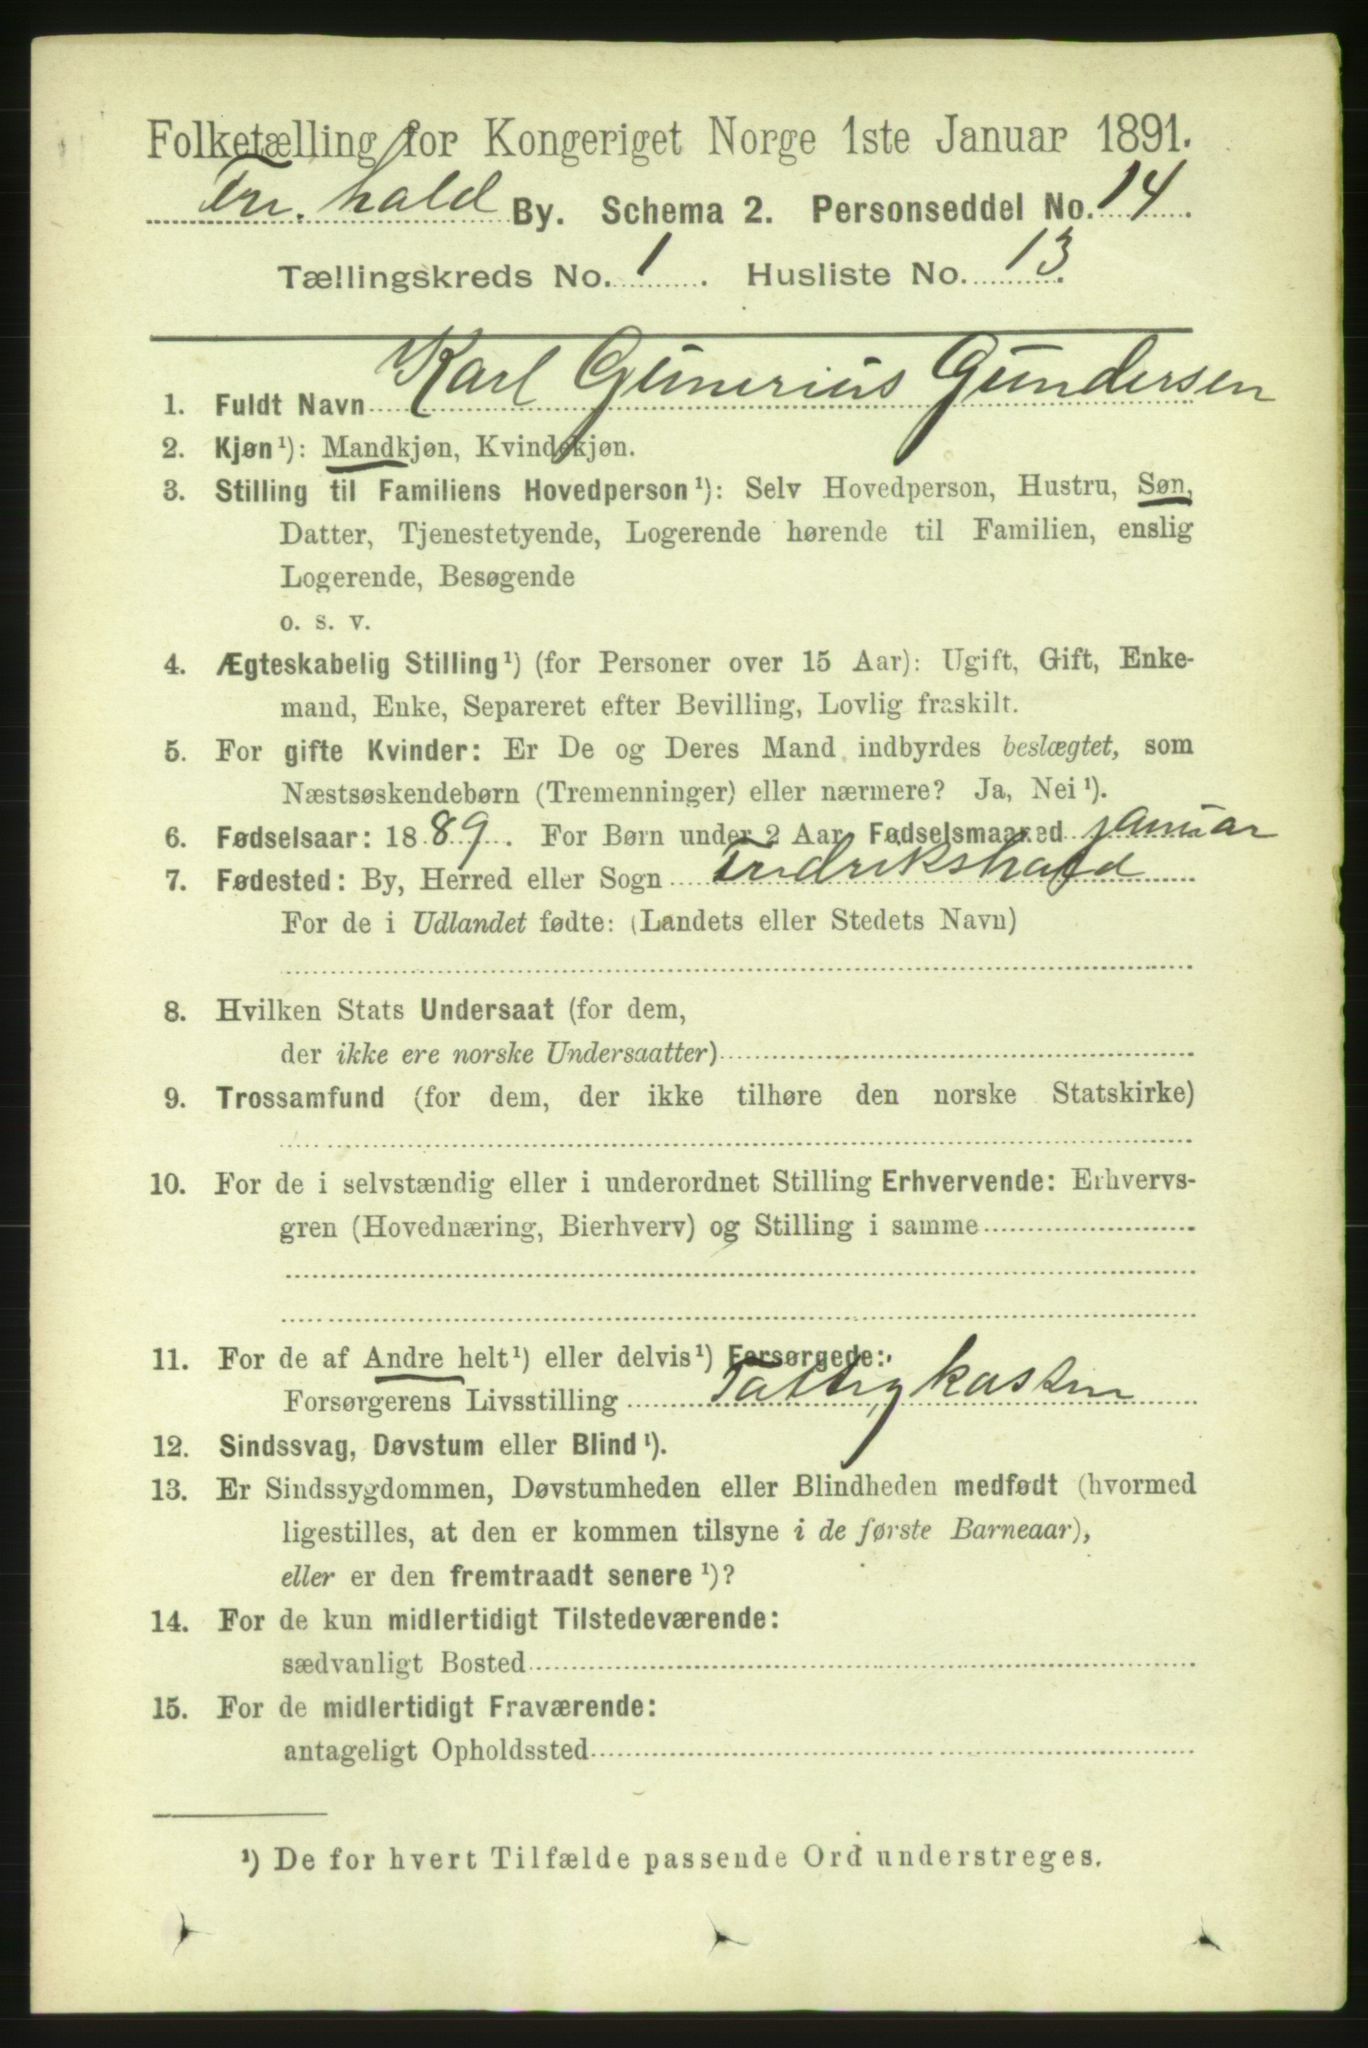 Folketælling for Kongeriget Norge 1ste Januar 1891.
Fr. hald By. Schema 2. Personseddel No. 14.
Tællingskreds No. 1. Husliste No. 13.
1. Fuldt Navn Karl Gunerius Gundersen
2. Kjøn¹): Mandkjøn, Kvindekjøn.
3. Stilling til Familiens Hovedperson¹): Selv Hovedperson, Hustru, Søn,
Datter, Tjenestetyende, Logerende hørende til Familien, enslig
Logerende, Besøgende
o. s. v.
4. Ægteskabelig Stilling¹) (for Personer over 15 Aar): Ugift, Gift, Enke-
mand, Enke, Separeret efter Bevilling, Lovlig fraskilt.
5. For gifte Kvinder: Er De og Deres Mand indbyrdes beslægtet, som
Næstsøskendebørn (Tremenninger) eller nærmere? Ja, Nei¹).
6. Fødselsaar: 1889. For Børn under 2 Aar Fødselsmaaned januar
7. Fødested: By, Herred eller Sogn Fredrikshald
For de i Udlandet fødte: (Landets eller Stedets Navn)
8. Hvilken Stats Undersaat (for dem,
der ikke ere norske Undersaatter)
9. Trossamfund (for dem, der ikke tilhøre den norske Statskirke)
10. For de i selvstændig eller i underordnet Stilling Erhvervende: Erhvervs-
gren (Hovednæring, Bierhverv) og Stilling i samme
11. For de af Andre helt¹) eller delvis¹) Forsørgede:
Forsørgerens Livsstilling Fattigkassen
12. Sindssvag, Døvstum eller Blind¹).
13. Er Sindssygdommen, Døvstumheden eller Blindheden medfødt (hvormed
ligestilles, at den er kommen tilsyne i de første Barneaar),
eller er den fremtraadt senere¹)?
14. For de kun midlertidigt Tilstedeværende:
sædvanligt Bosted
15. For de midlertidigt Fraværende:
antageligt Opholdssted
¹) De for hvert Tilfælde passende Ord understreges.